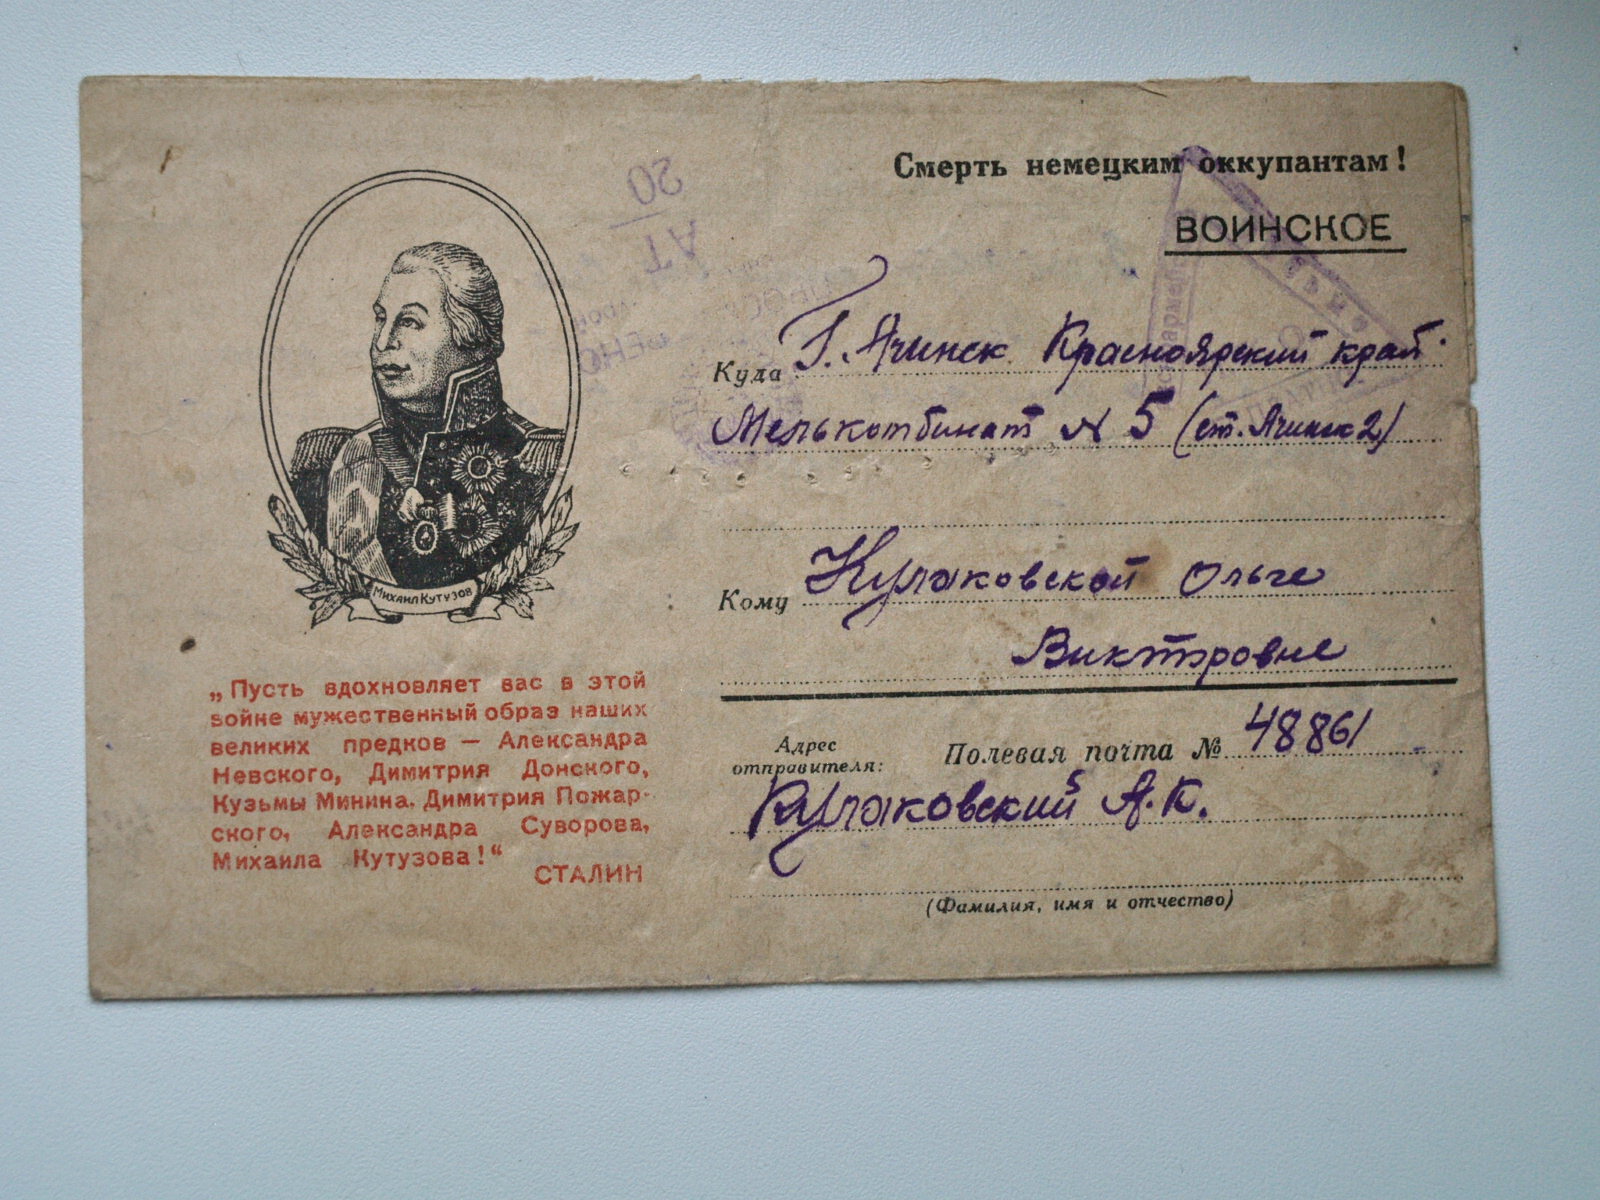 Смерть немецким оккупантам!
ВОИНСКОЕ
Куда Г. Ачинск Красноярский край.
Мелькомбинат № 5 (ст. Ачинск 2)
Кому Кулаковской Ольге
Викторовне
Адрес отправителя: Полевая почта № 48861
Кулаковский А.К.
(Фамилия, имя и отчество)
МИХАИЛ КУТУЗОВ
„Пусть вдохновляет вас в этой
войне мужественный образ наших
великих предков — Александра
Невского, Димитрия Донского,
Кузьмы Минина, Димитрия Пожар-
ского, Александра Суворова,
Михаила Кутузова!“
СТАЛИН
20